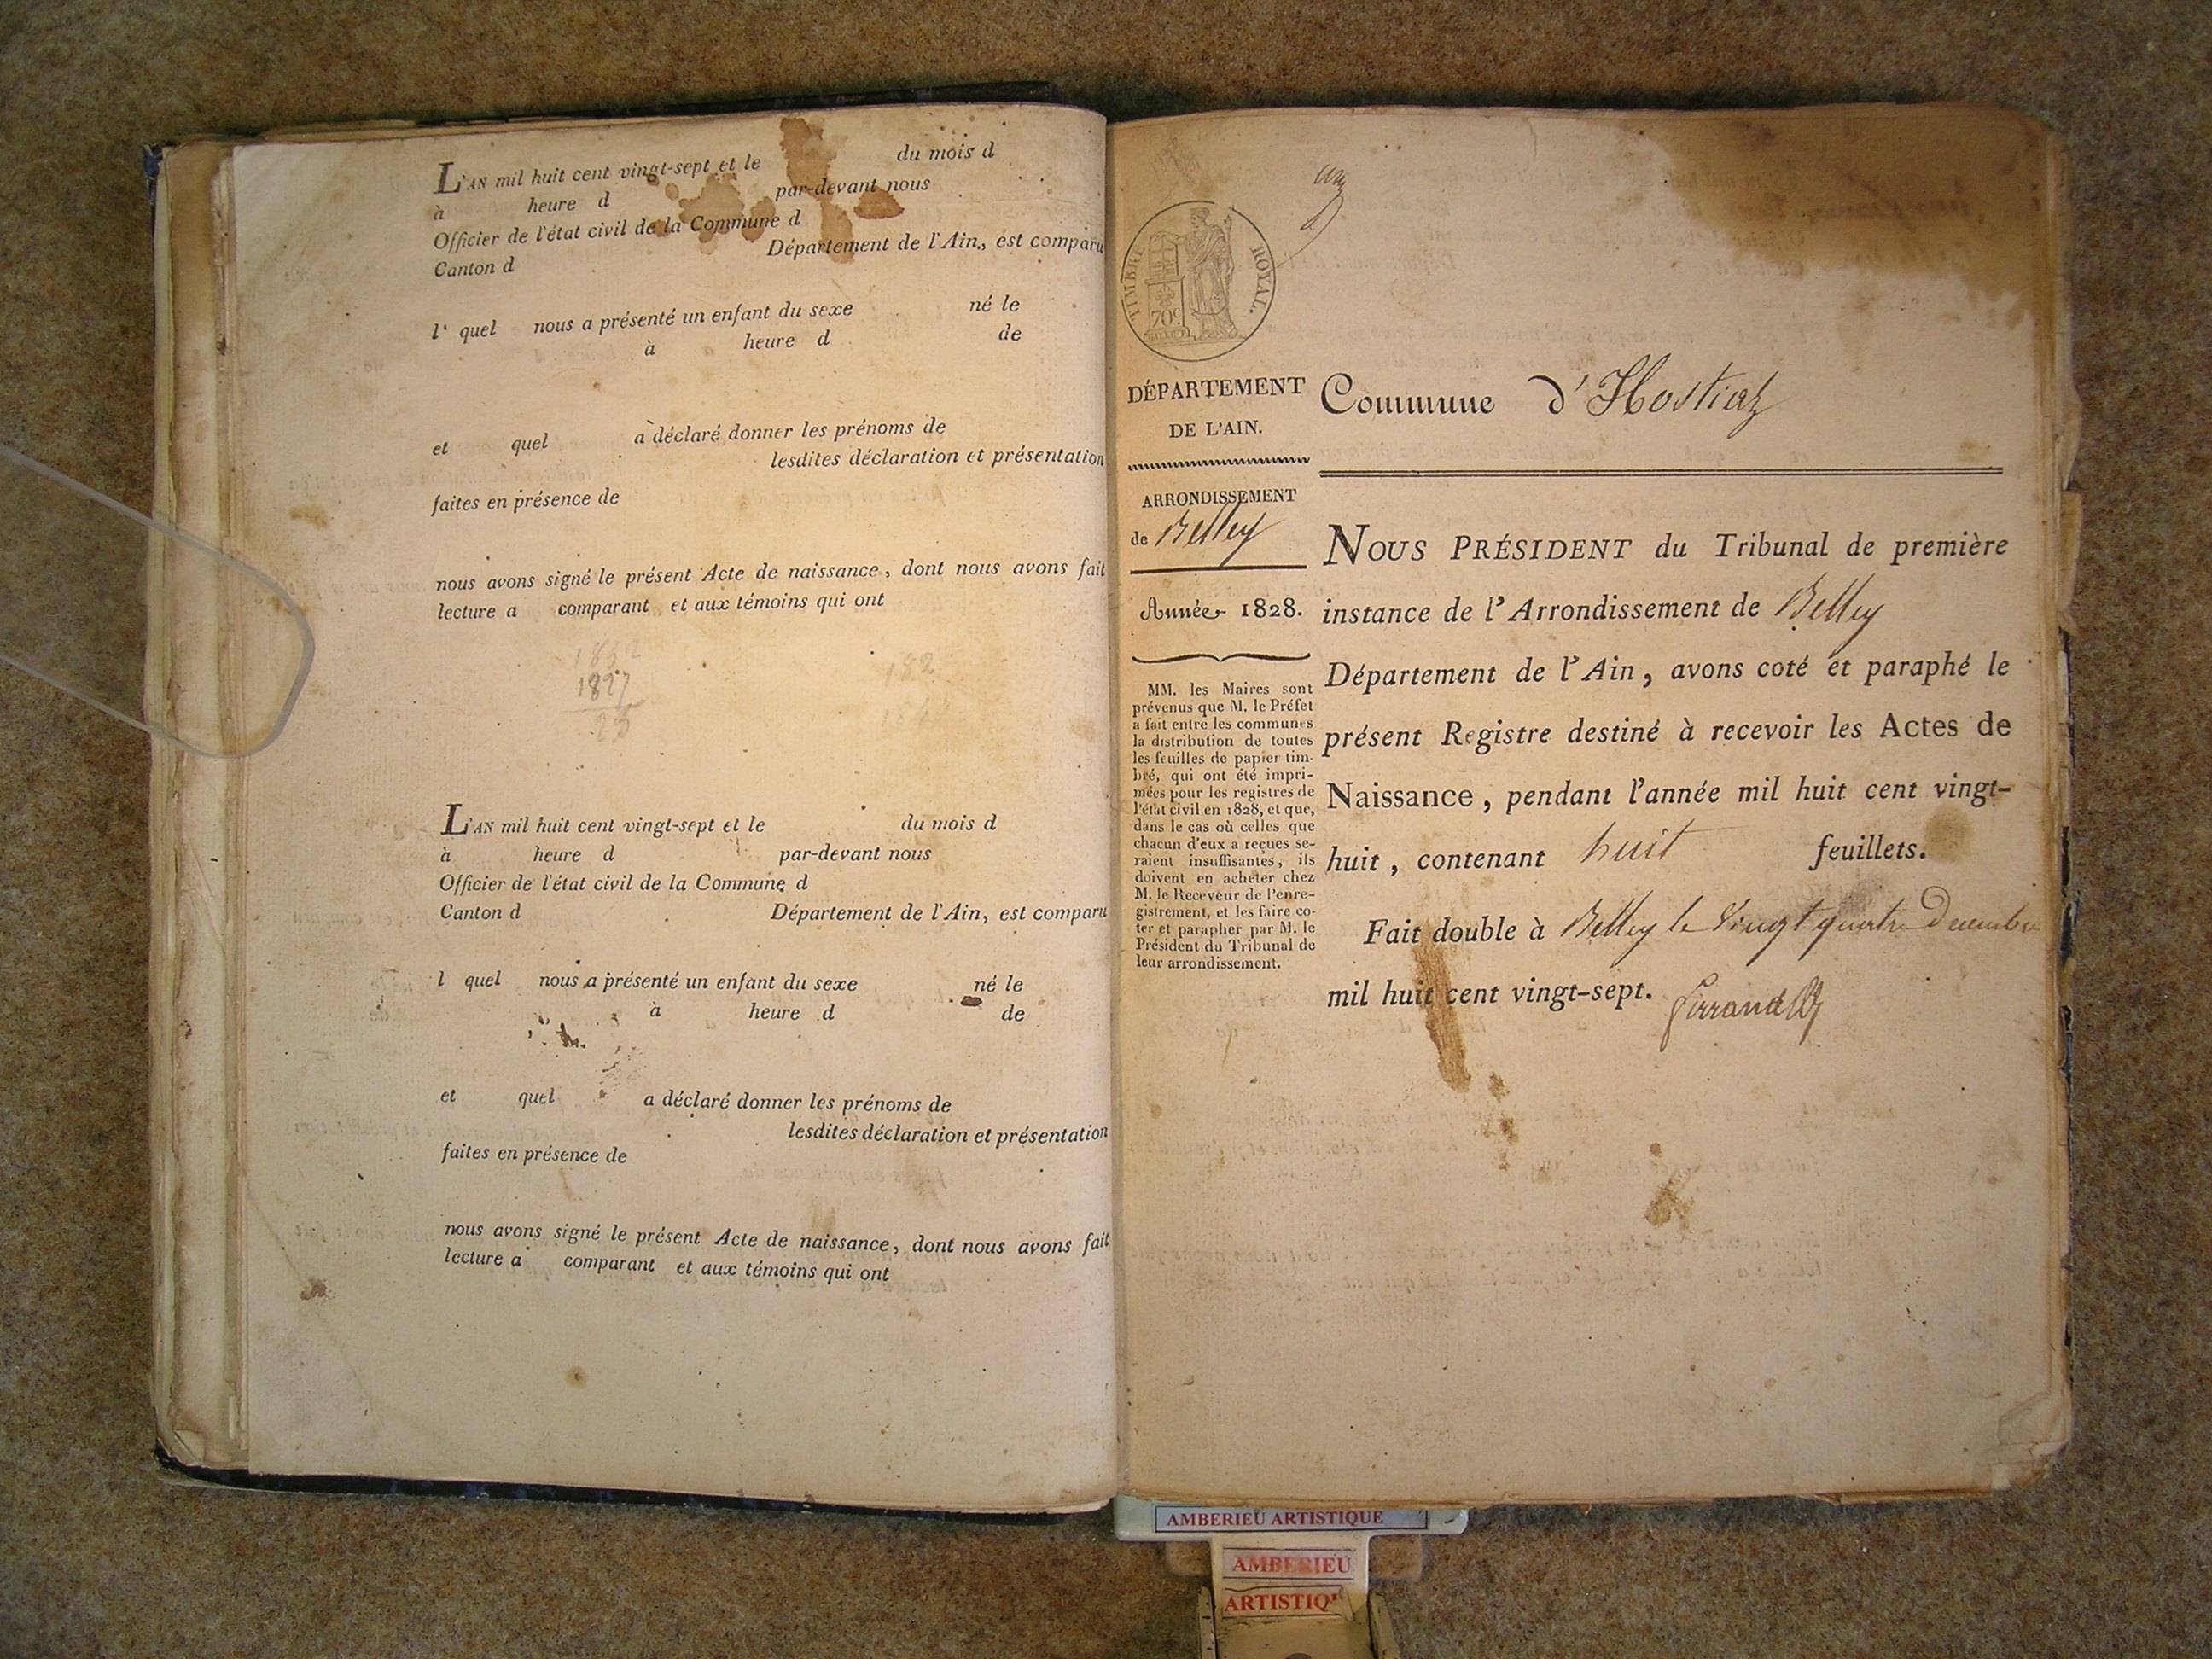 L'AN mil huit cent vingt-sept et le du mois d
à heure d par-devant nous
Officier de l'état civil de la Commune d
Canton d Département de l'Ain, est comparu
l' quel nous a présenté un enfant du sexe né le
à heure d de
et quel a déclaré donner les prénoms de
lesdites déclaration et présentation
faites en présence de
nous avons signé le présent Acte de naissance, dont nous avons fait
lecture a comparant et aux témoins qui ont
1827
182
L'AN mil huit cent vingt-sept et le du mois d
à heure d par-devant nous
Officier de l'état civil de la Commune d
Canton d Département de l'Ain, est comparu
l quel nous a présenté un enfant du sexe né le
à heure d de
et quel a déclaré donner les prénoms de
lesdites déclaration et présentation
faites en présence de
nous avons signé le présent Acte de naissance, dont nous avons fait
lecture a comparant et aux témoins qui ont
un
TIMBRE ROYAL.
70c
DÉPARTEMENT
DE L'AIN.
ARRONDISSEMENT
de Belley
Année 1828.
MM. les Maires sont
prévenus que M. le Préfet
a fait entre les communes
la distribution de toutes
les feuilles de papier tim-
bré, qui ont été impri-
mées pour les registres de
l'état civil en 1828, et que,
dans le cas où celles que
chacun d'eux a reçues se-
raient insuffisantes, ils
doivent en acheter chez
M. le Receveur de l'enre-
gistrement, et les faire co-
ter et parapher par M. le
Président du Tribunal de
leur arrondissement.
Commune d'Hostiaz
NOUS PRÉSIDENT du Tribunal de première
instance de l'Arrondissement de Belley
Département de l'Ain, avons coté et paraphé le
présent Registre destiné à recevoir les Actes de
Naissance, pendant l'année mil huit cent vingt-
huit, contenant huit feuillets.
Fait double à Belley le Vingt quatre Decembre
mil huit cent vingt-sept.
AMBERIEU ARTISTIQUE
AMBERIEU
ARTISTIQ